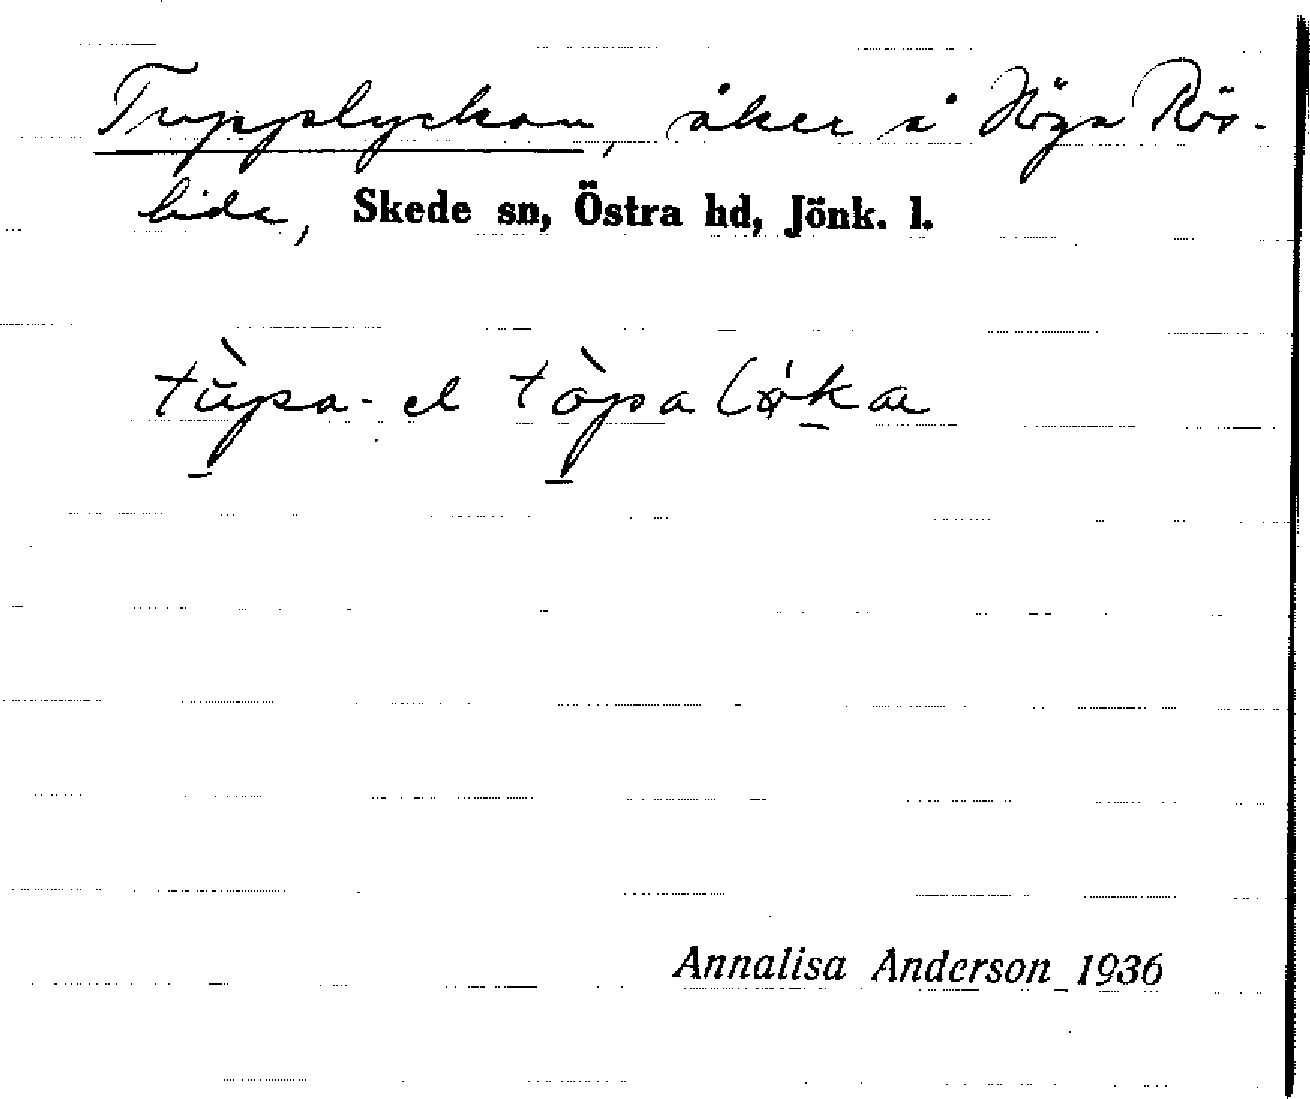 Tupplyckan, åker å Höga Rös-
lida, Skede sn, Östra hd, Jönk. l.
tùpa- el tòpa løka
Annalisa Anderson 1936